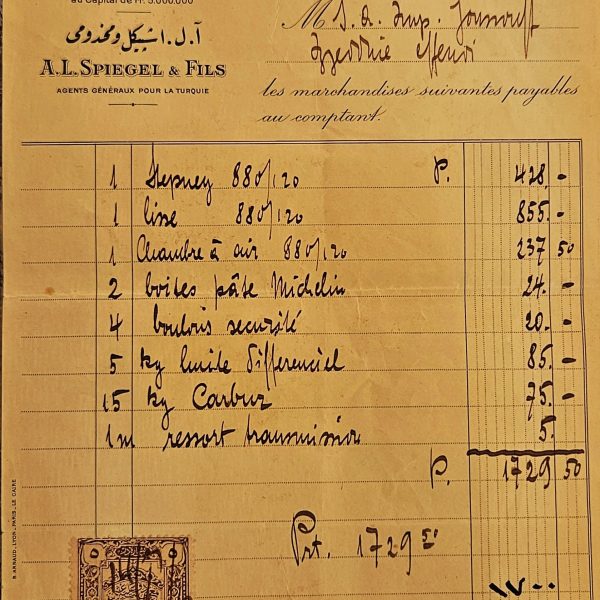 au Capital de Fr. 5.000.000
آ. ل. اشپیكل و مخدومی
A.L. SPIEGEL & FILS
AGENTS GÉNÉRAUX POUR LA TURQUIE
M S. A. Imp. Youssouf
Izzeddine Effendi
les marchandises suivantes payables
au comptant.
1 Stepney 880/120 P. 428. -
1 lisse 880/120 855. -
1 Chambre à air 880/120 237 50
2 boites pâte Michelin 24. -
4 boulons securité 20. -
5 kg huile differenciel 85. -
15 kg Carbur 75. -
1m ressort transmission 5.
P. 1729 50
Prt. 1729 50
١٧٠٠
B. ARNAUD - LYON - PARIS - LE CAIRE
٥ ٥